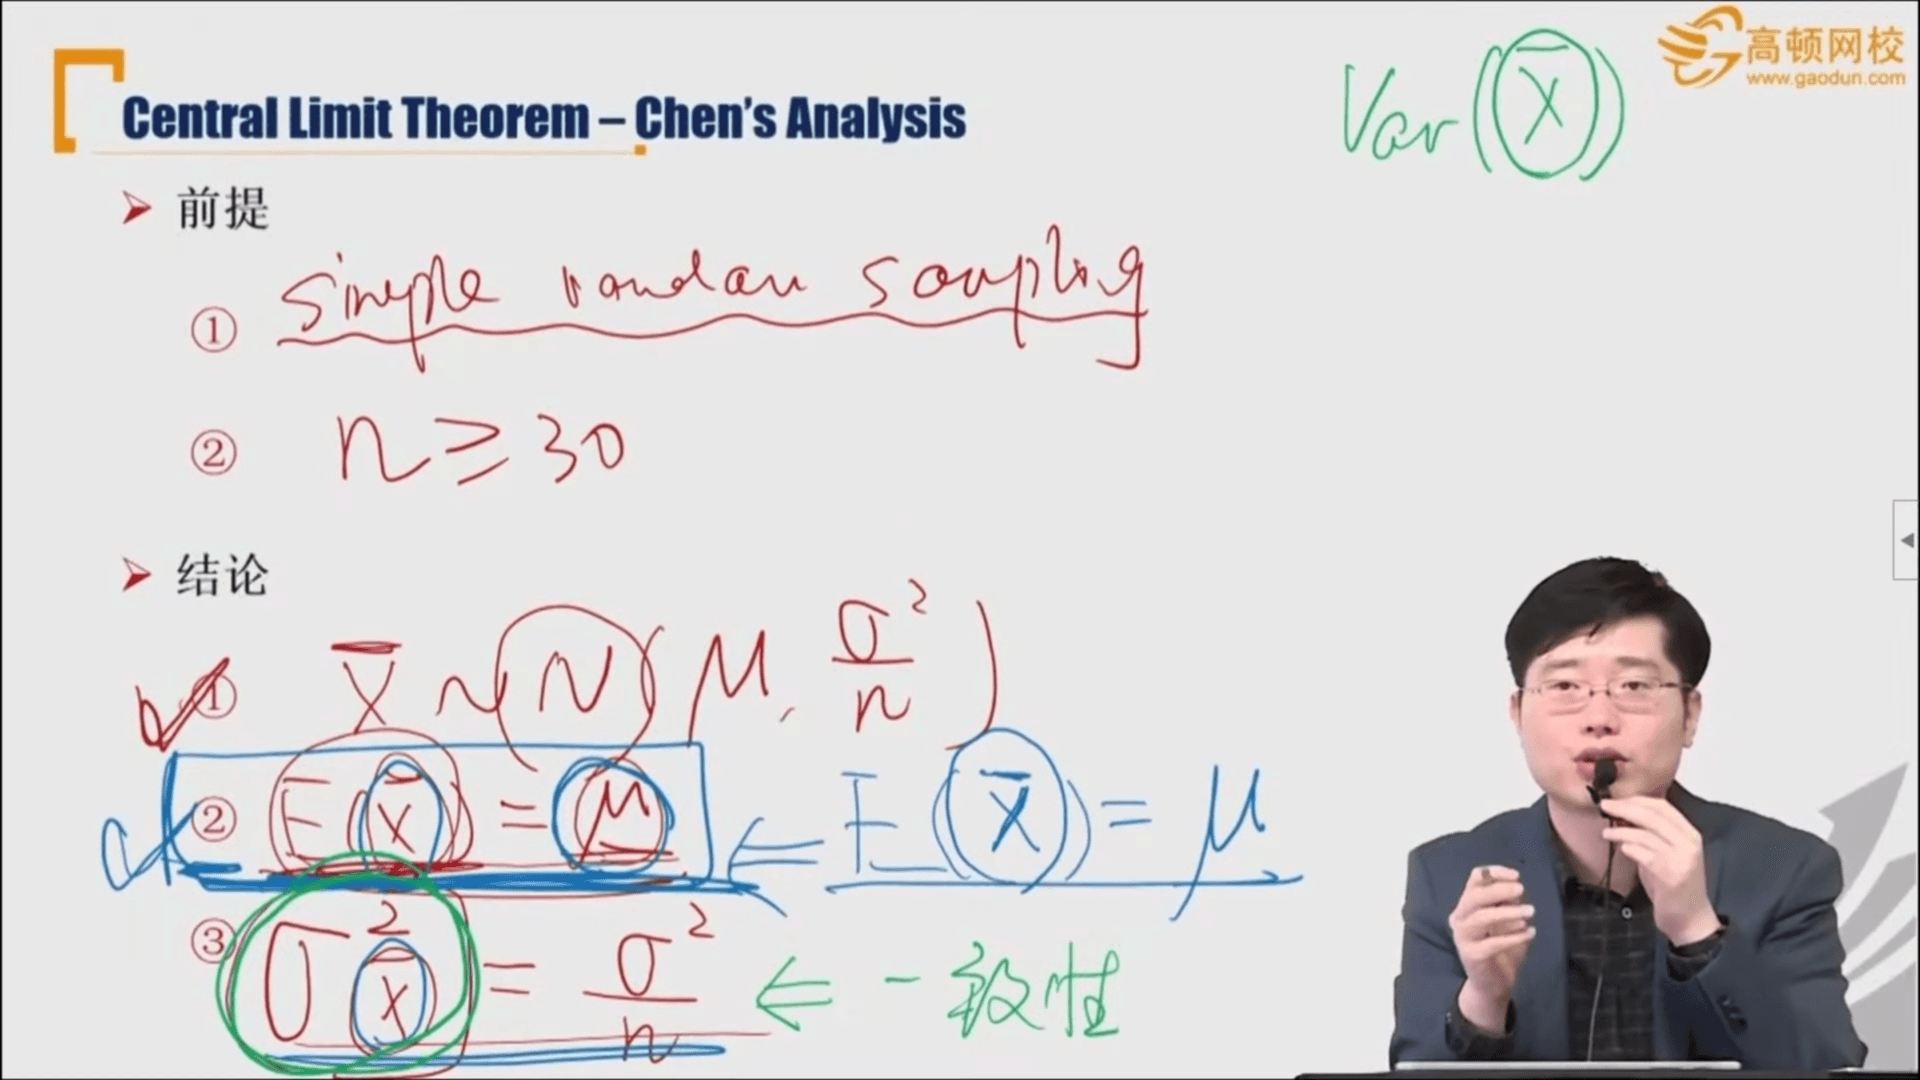 高顿网校
www.gaodun.com
Var(X̅)
Central Limit Theorem – Chen's Analysis
前提
① simple random sampling
② n ≥ 30
结论
① X̅ ~ N(μ, σ²/n)
② E(X̅) = μ ⇐ E(X̅) = μ
③ σ²X̅ = σ²/n ⇐ 一致性